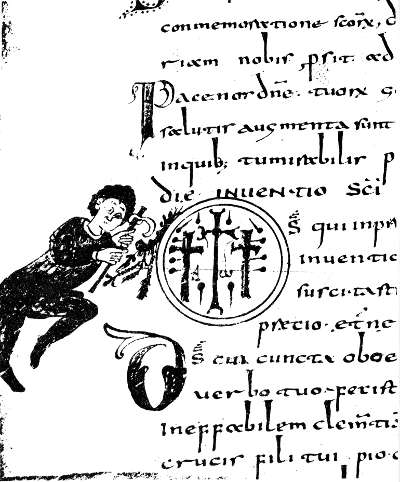 conmemoratione scorx, c
riam nobis psit. ad
Pacenordne. tuorx
salutis augmenta sunt
inquib; tumirabilis p
die INVENTIO SCI
S qui inpr
inventio
suscitasti
ω
DS cui cuncta oboe
verbo tuo. perist
Ineffabilem clemti
crucis filii tui pio